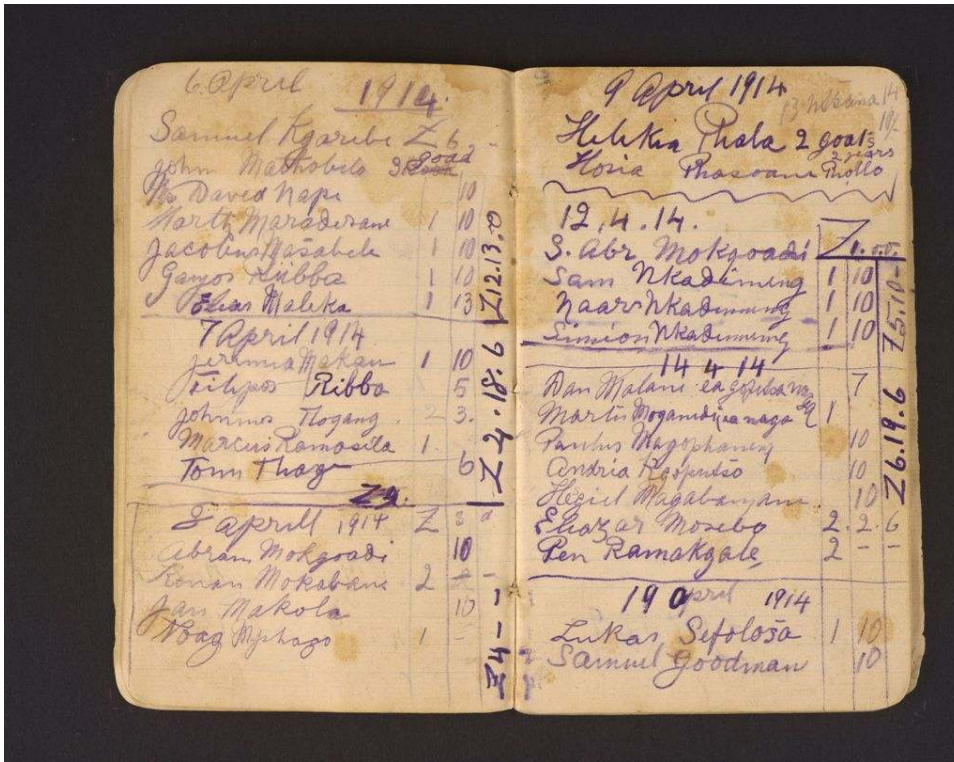 6 April 1914.
Samuel Kgaribe Z 6 -
John Mathobela 3 goad
David Nape 10
Marth Maradisane 1 10
Jacobus Masabele 1 10
Gayos Ribba 1 10
Elias Maleka 1 13
Z12.13.0
7 April 1914
Jeremia Makau 1 10
Filipos Ribba 5
Johnnos Tlogang 2 3.
Marcus Ramosela 1.
Tom Thage 6
Z 4.18.6
8 Aprill 1914 Z
Abram Mokgoadi 10
Konan Mokabane 2 - -
Jan Makola 10
Noag Mphago 1 -
Z 4 - -
9 April 1914
14
10/-
Helekia Phala 2 goats
2 years
Hosia Phasoane
12.4.14.
S. Abr Mokgoadi Z1.0.0.
Sam Nkadimeng 1 10
Naar Nkadimeng 1 10
Simion Nkadimeng 1 10
Z5.10-
14 4 14
Dan Malani ea 7
Martis Moganedi ea naga 1
Paulus Magophaneng 10
Andria 10
Heziel Magabanyane 10
Eliazar Mosebo 2.2.6
Pen Ramakgale 2 - -
Z6.19.6
19 April 1914
Lukas Sefolosa 1 10
Samuel Goodman 10